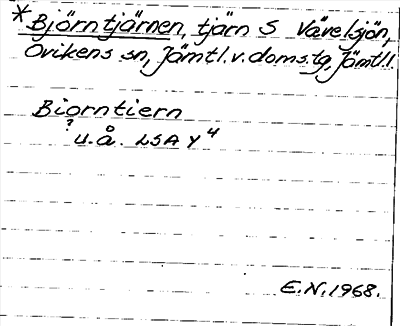 *Björntjärnen, tjärn S Vävelsjön,
Ovikens sn, Jämtl.v.doms.tg, Jämtl l.
Biorntiern
? u.å. LSA Y 4
E.N. 1968.